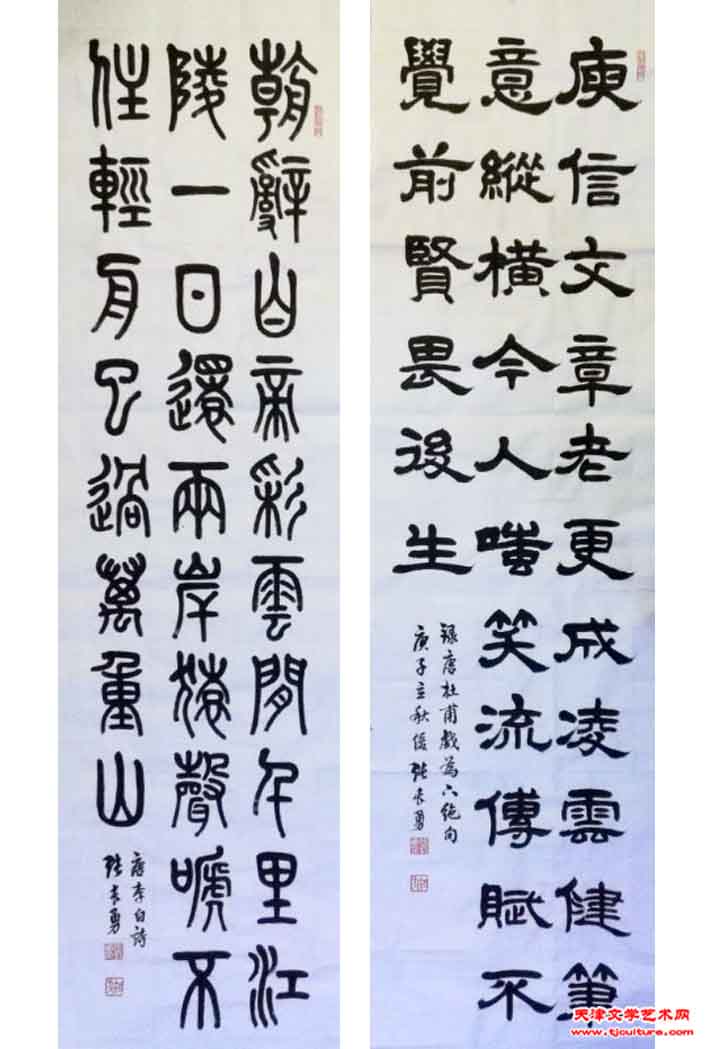 庾信文章老更成凌雲健筆
意縱橫今人嗤笑流傳賦不
覺前賢畏後生
録唐杜甫戲為六絕句
庚子立秋後張長勇
朝辭白帝彩雲間千里江
陵一日還兩岸猿聲嗁不
住輕舟已過萬重山
唐李白詩
張長勇
天津文学艺术网
www.tjculture.com